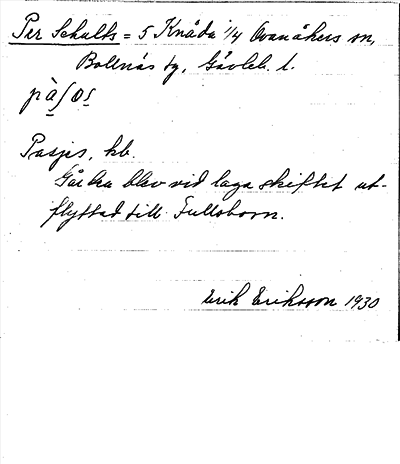 Per Schults = 5 Knåda 1/4 Ovanåkers sn,
Bollnäs tg, Gävleb. l.
Pasjes, kb.
Gården blev vid laga skiftet ut-
flyttad till Fullsborn.
Erik Eriksson 1930